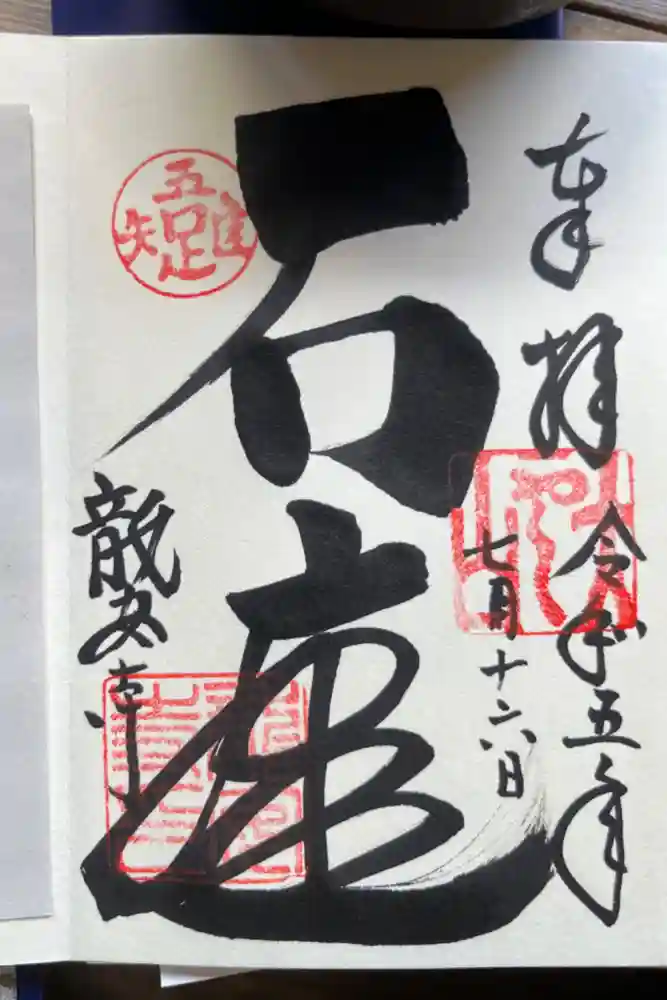 奉拝
令和五年
七月十六日
石庭
龍安寺
五隹疋矢